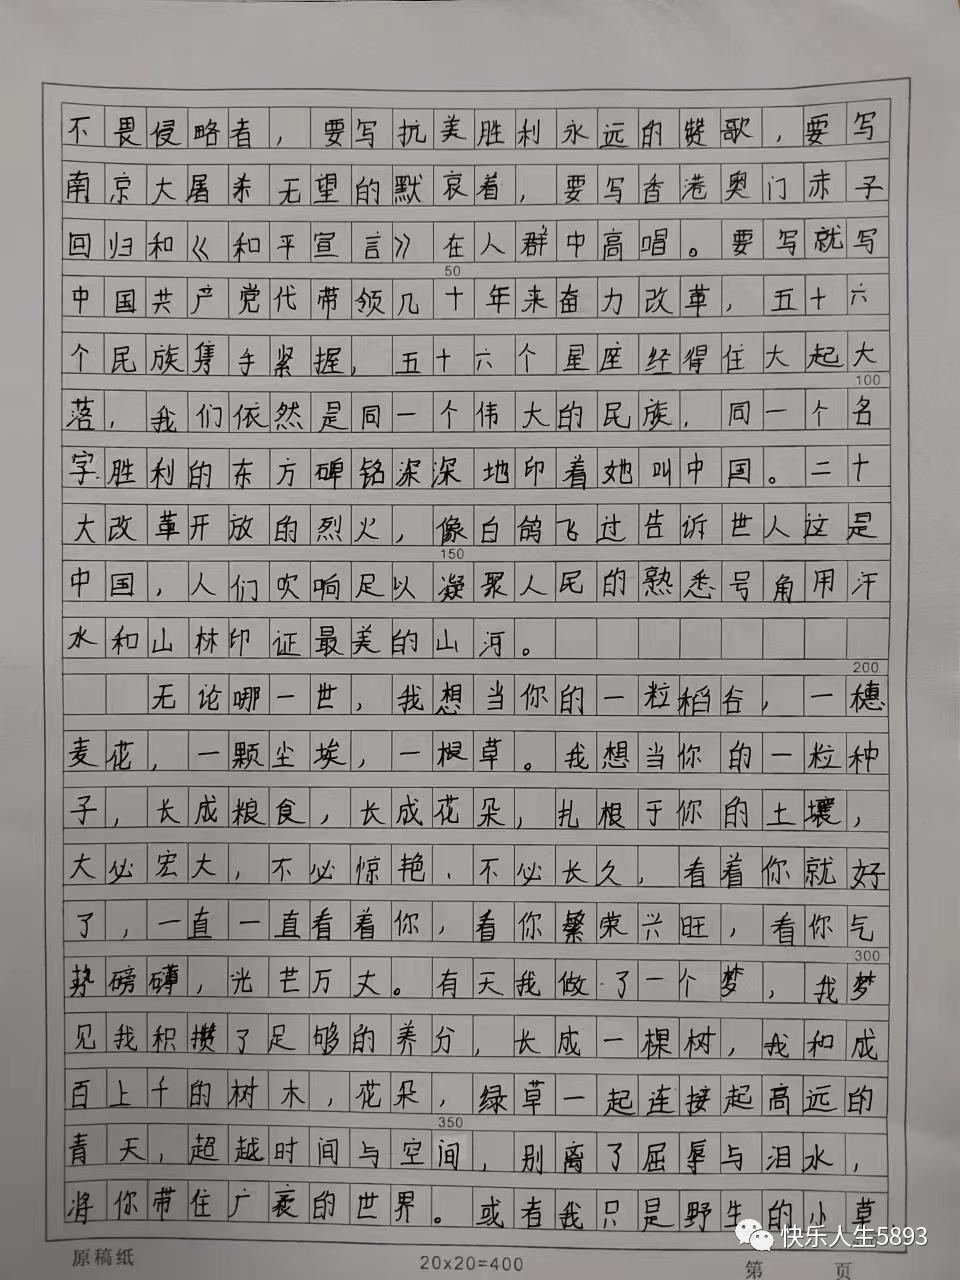 不畏侵略者，要写抗美胜利永远的赞歌，要写
南京大屠杀无望的默哀着，要写香港奥门赤子
回归和《和平宣言》在人群中高唱。要写就写
50
中国共产党代带领几十年来奋力改革，五十六
个民族隽手紧握，五十六个星座经得住大起大
100
落，我们依然是同一个伟大的民族，同一个名
字胜利的东方碑铭深深地印着她叫中国。二十
大改革开放的烈火，像白鸽飞过告诉世人这是
150
中国，人们吹响足以凝聚人民的熟悉号角用汗
水和山林印证最美的山河。
200
无论哪一世，我想当你的一粒稻谷，一穗
麦花，一颗尘埃，一根草。我想当你的一粒种
子，长成粮食，长成花朵，扎根于你的土壤，
大必宏大，不必惊艳、不必长久，看着你就好
了，一直一直看着你，看你繁荣兴旺，看你气
300
势磅礴，光芒万丈。有天我做了一个梦，我梦
见我积攒了足够的养分，长成一棵树，我和成
百上千的树木，花朵，绿草一起连接起高远的
350
青天，超越时间与空间，别离了屈辱与泪水，
将你带住广袤的世界。或者我只是野生的小草
原稿纸
20x20=400
第 页
快乐人生5893